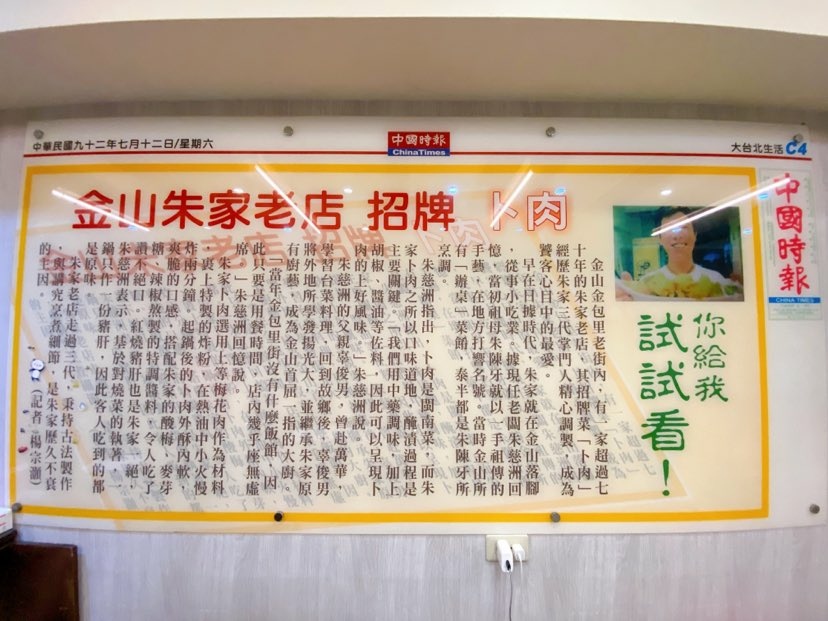 中華民國九十二年七月十二日/星期六
中國時報
ChinaTimes
大台北生活 C4
金山朱家老店 招牌 卜肉
中國時報
CHINA TIMES
你給我
試試看！
金山金包里老街內，有一家超過七
十年的朱家老店，其招牌菜「卜肉」
經歷朱家三代掌門人精心調製，成為
饕客心目中的最愛。
早在日據時代，朱家就在金山落腳
，從事小吃業。據現任老闆朱慈洲回
憶，當初祖母朱陳牙就以一手祖傳的
手藝，在地方打響名號，當時金山所
有「辦桌」菜餚，泰半都是朱陳牙所
烹調。
朱慈洲指出，卜肉是閩南菜，而朱
家卜肉之所以口味道地，醃漬過程是
主要關鍵，「我們用中藥調味，加上
胡椒、醬油等佐料，因此可以呈現卜
肉的上好風味。」朱慈洲說。
朱慈洲的父親辜俊男，曾赴萬華，
學習台菜料理，回到故鄉後，辜俊男
將外地所學發揚光大，並繼承朱家原
有廚藝，成為金山首屈一指的大廚。
「當年金包里街沒有什麼飯館，因
此只要是用餐時間，店內幾乎座無虛
席。」朱慈洲回憶說。
朱家卜肉選用上等梅花肉作為材料
，裹上特製的炸粉，在熱油中小火慢
炸兩分鐘，起鍋後的卜肉外酥內軟，
爽脆的口感，搭配朱家的酸梅、麥芽
糖、辣椒熬製的特調醬料，令人吃了
讚不絕口。紅燒豬肝也是朱家一絕，
朱慈洲表示，基於對燒菜的執著，一
鍋只作一份豬肝，因此客人吃到的都
是原味。
朱家老店走過三代，秉持古法製作
，與講究烹煮細節，是朱家歷久不衰
的主因。
（記者 楊宗灝）